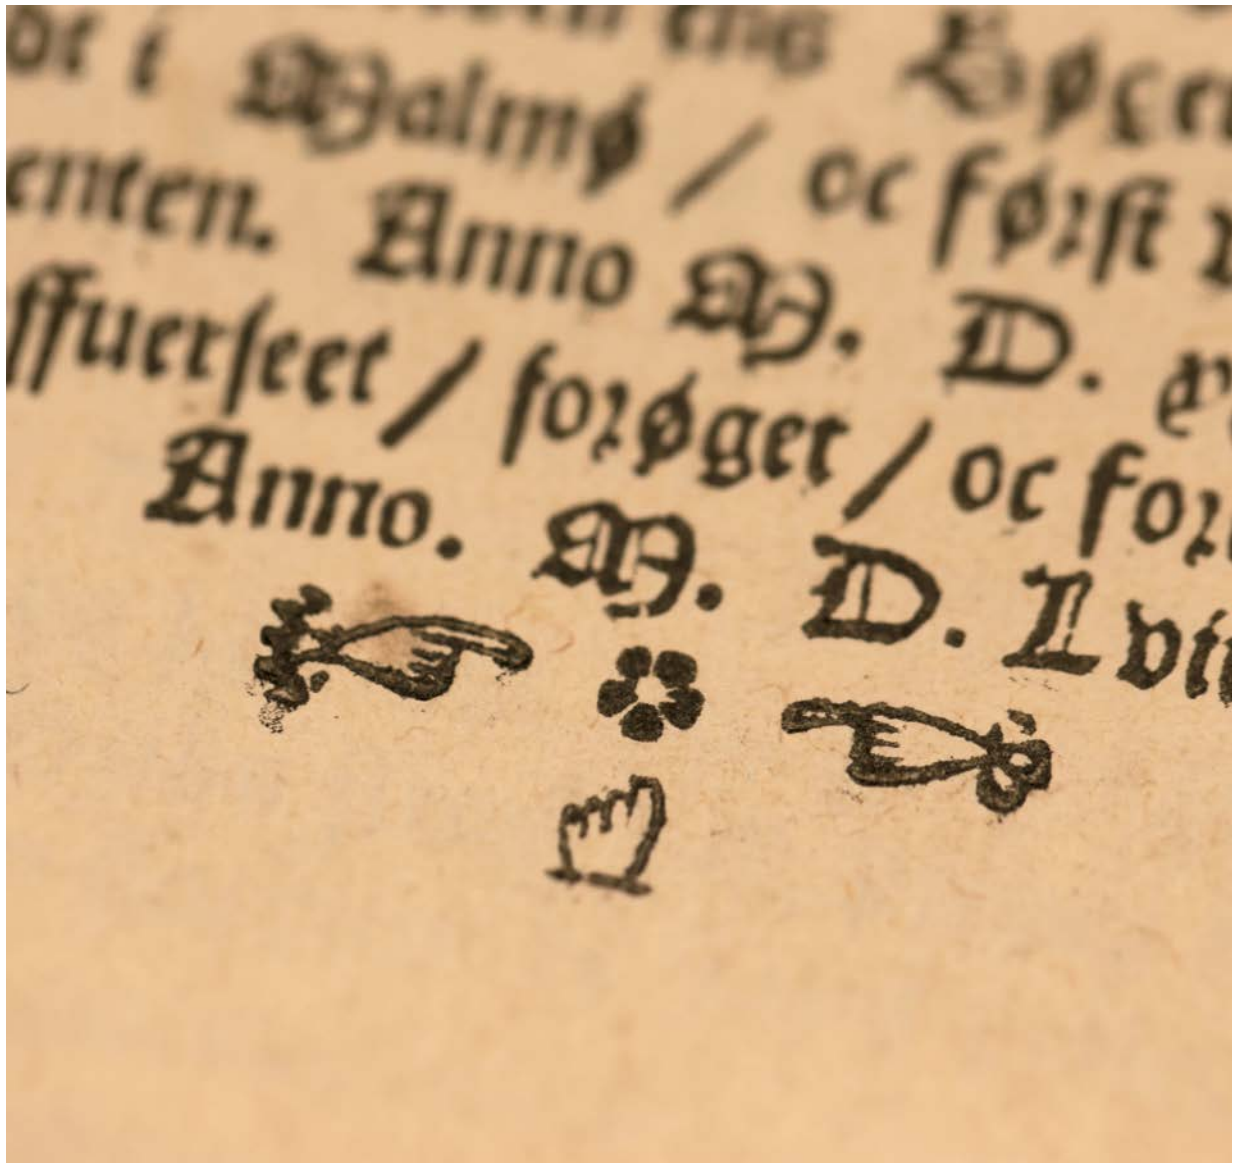 i Malmø / oc først
enten. Anno M. D.
ffuerseet / forøget / oc for
Anno. M. D. Lvii